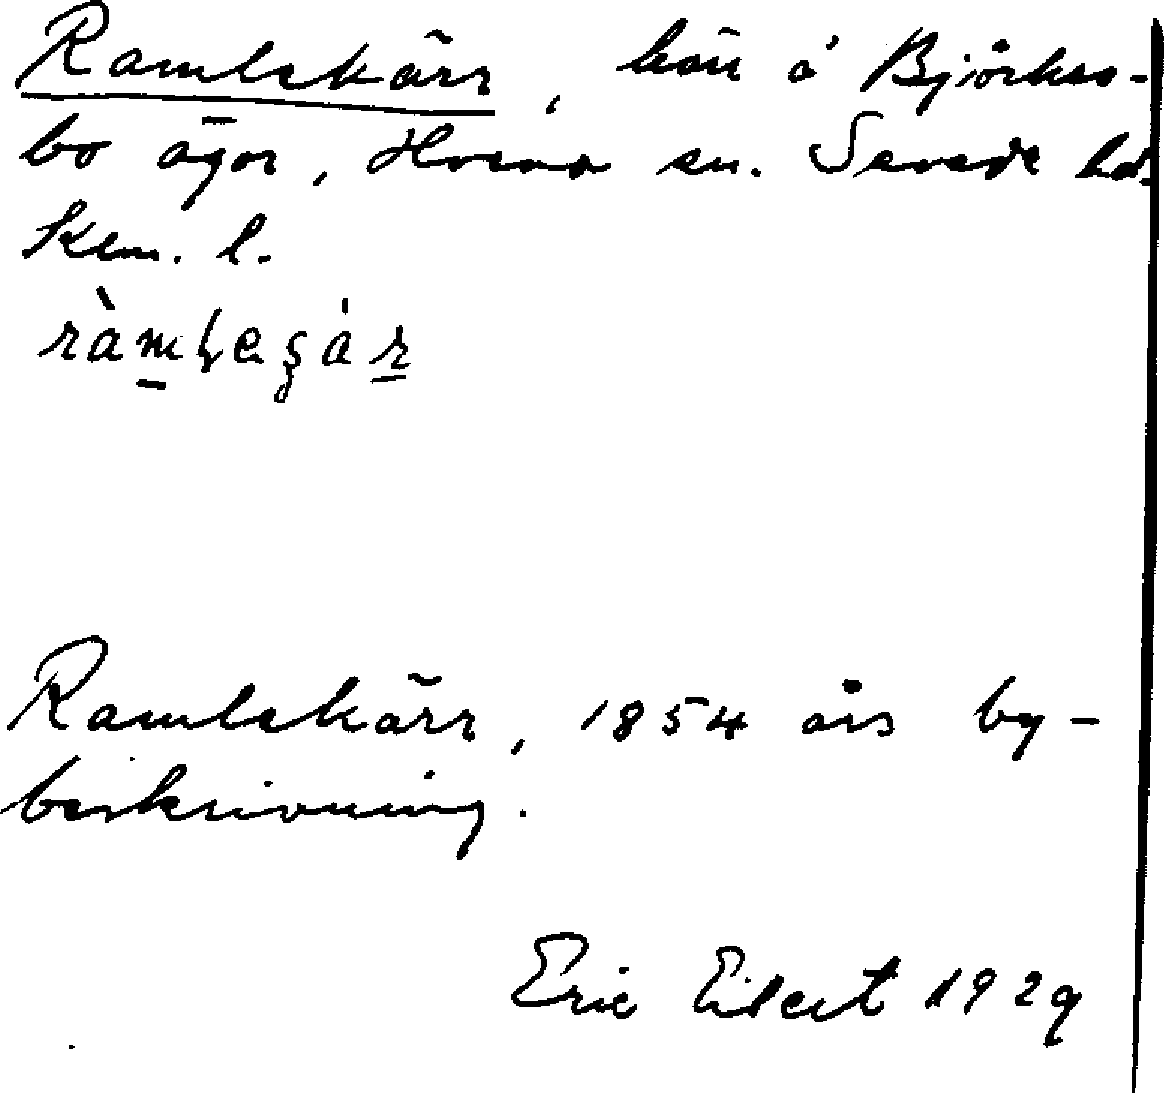 Ramlekärr, kärr å Björkes-
bo ägor, Hvena sn. Sevede hd.
Kem. l.
Ramlekärr, 1854 års by-
beskrivning.
Eric Elfcert 1929